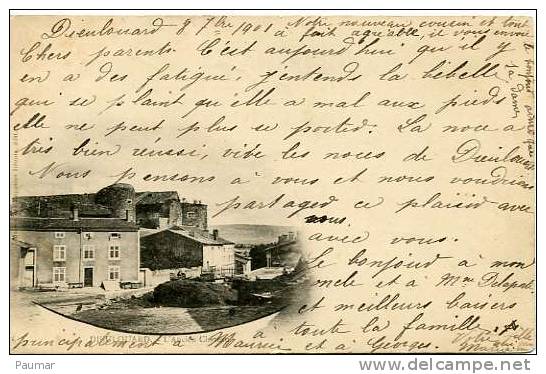 Dieulouard 8 7bre 1901
Notre nouveau cousin et tout
à fait agréable, il vous envoie
le bonjour ainsi que
sa dame
Chers parents. C'est aujourd'hui qu'il y
en a des fatigué, j'entends la bébelle
qui se plaint qu'elle a mal aux pieds
elle ne peut plus se porter. La noce a
très bien réussi, vive les noces de Dieulouard.
Nous pensons à vous et nous voudrions
partager ce plaisir avec
vous.
avec vous.
Le bonjour à mon
oncle et à Mme
et meilleurs baisers
à toute la famille,
principalement à Maurice et à Georges.
Votre fille
DIEULOUARD. - L'Ancien Château
Paumar
http://www.delcampe.net